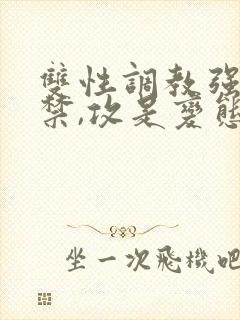 雙性調教强
禁,攻是變態
坐一次飛機吧